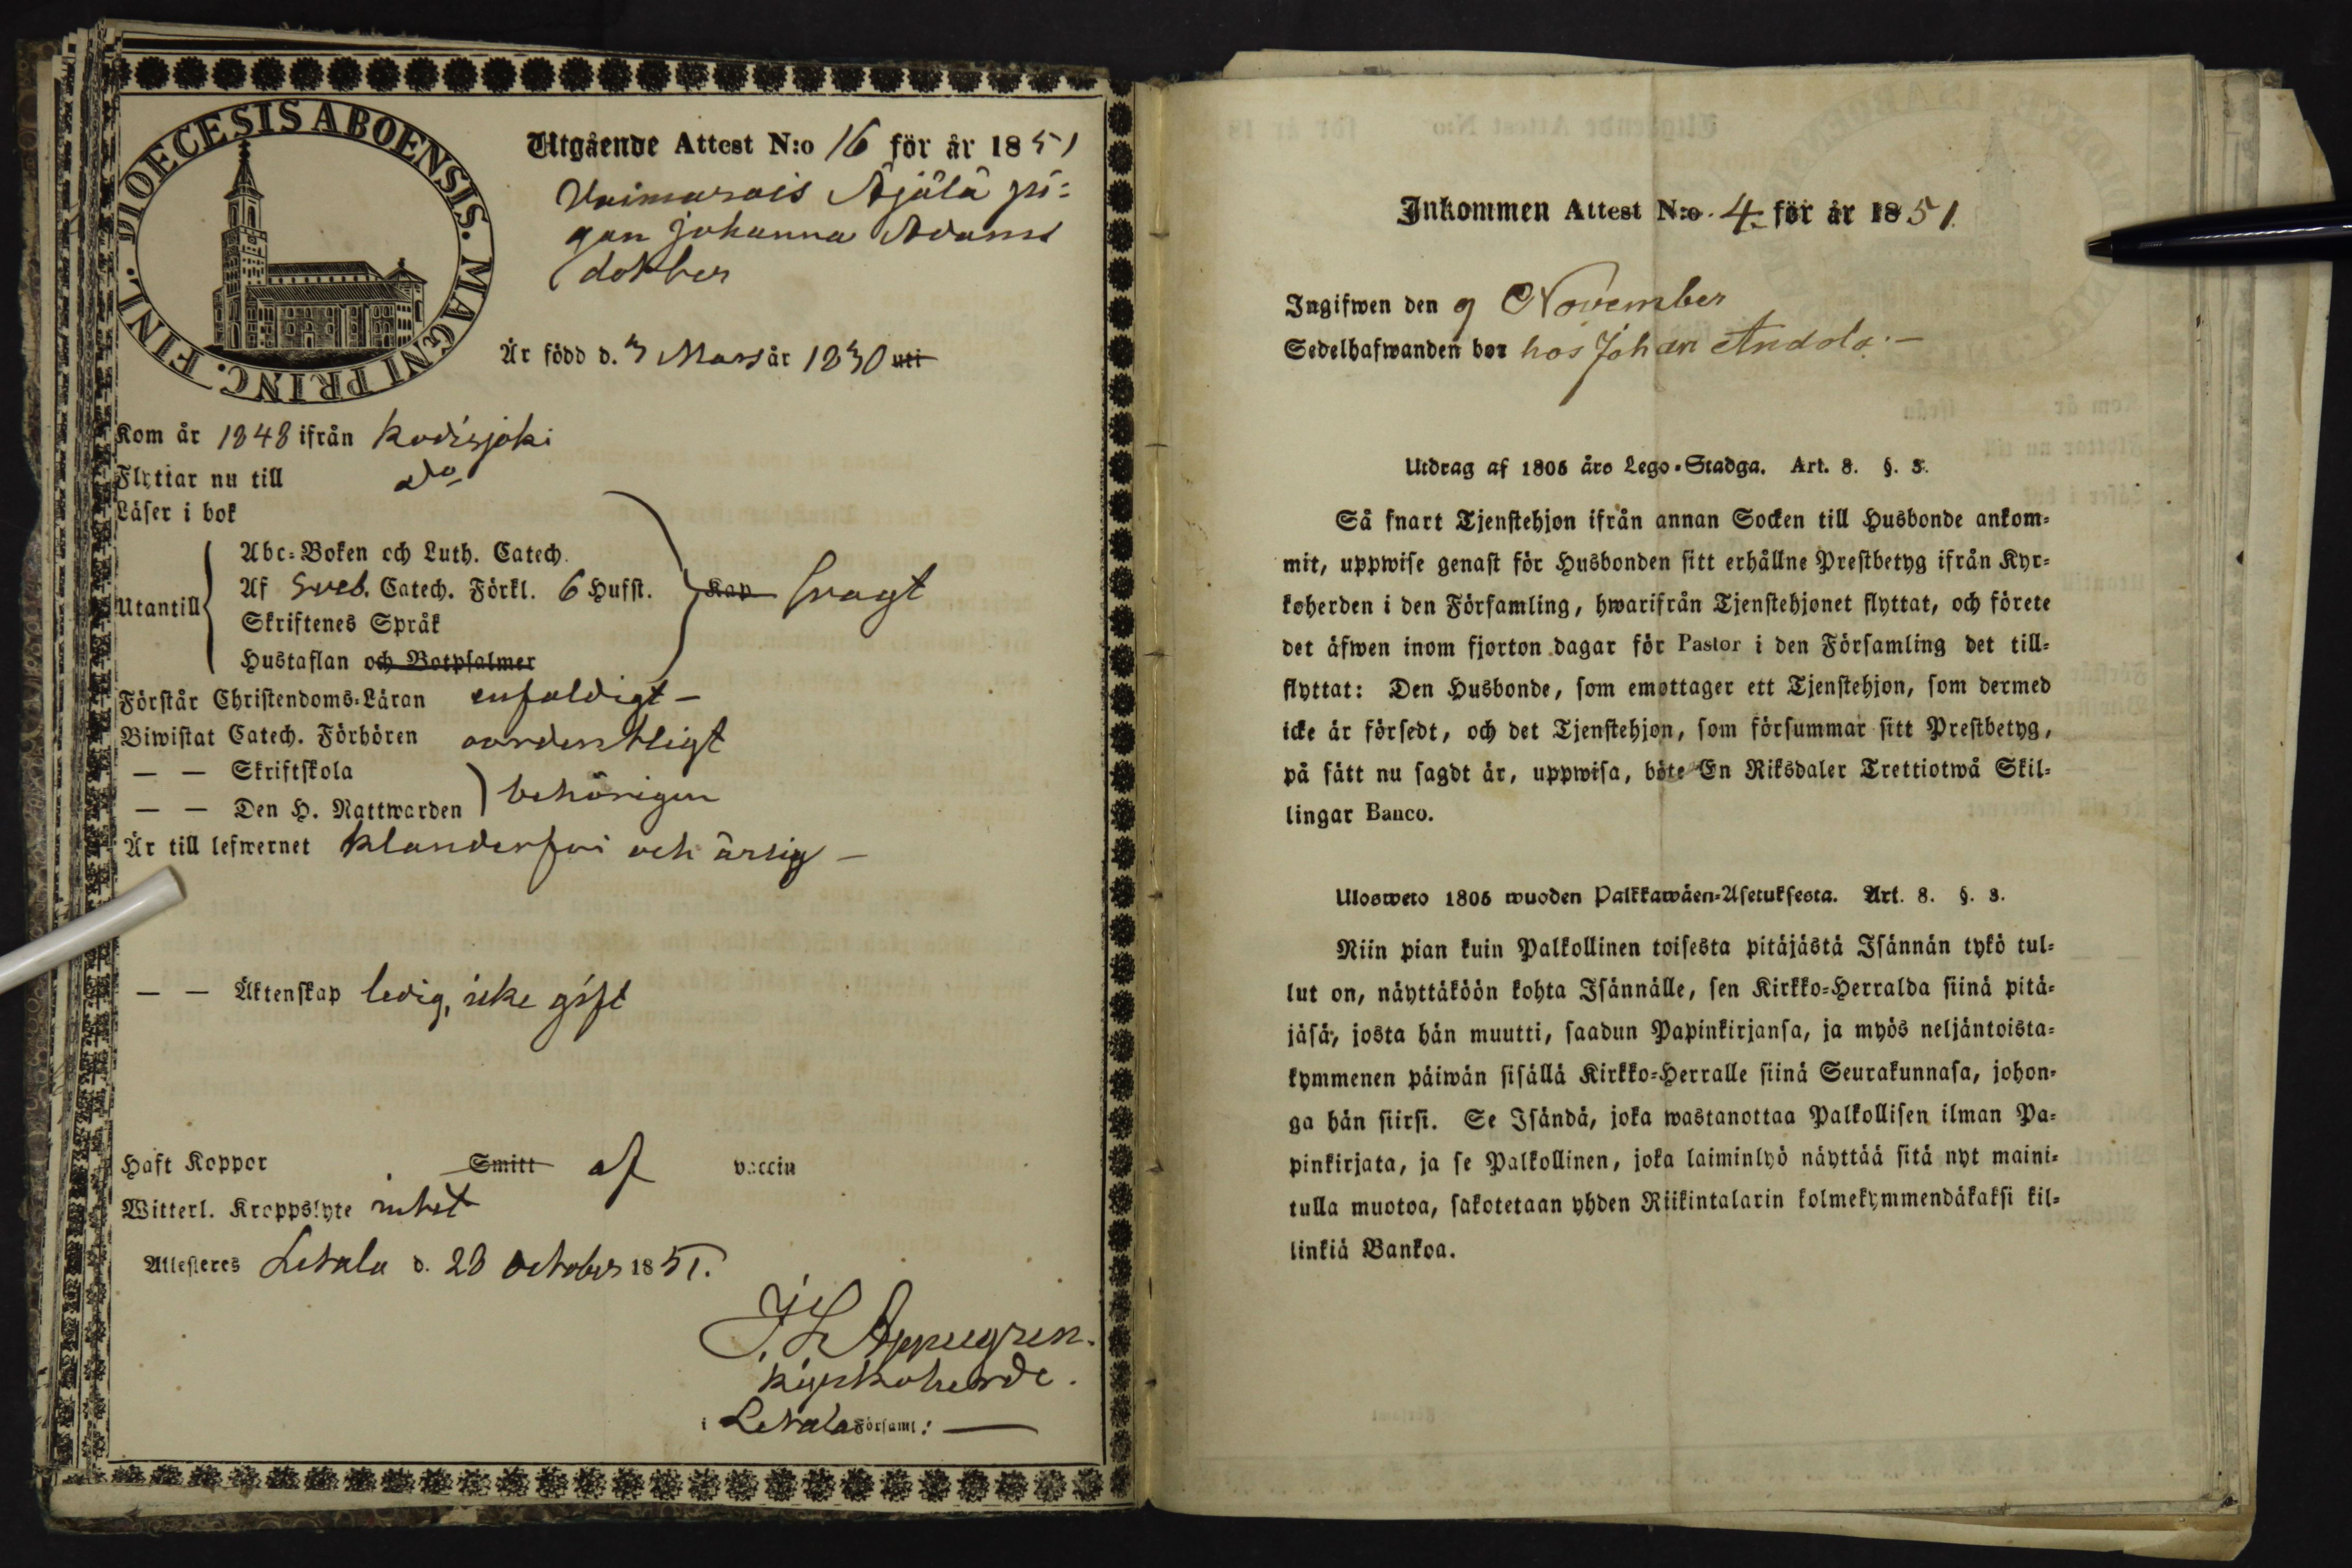 DIOECESIS ABOENSIS. MAGNI PRINC. FINL.
Utgående Attest N:o 16 för år 1851
Vaimarois Äjälä pi=
gan Johanna Adams
dotter
Är född d. 3 Mars år 1830 uti
Kom år 1848 ifrån Kodisjoki
Flyttar nu till do
Läser i bok
Abc=Boken och Luth. Catech.
Utantill
Af Sveb. Catech. Förkl. 6 Hufst.
Kap svagt
Skriftenes Språk
Hustaflan och Botpsalmer
Förstår Christendoms=Läran enfaldigt –
Biwistat Catech. Förhören oordentligt
— — Skriftskola
— — Den H. Nattwarden behörigen
Är till lefwernet klanderfri och ärlig –
— — Äktenskap ledig, icke gift
Haft Koppor Smitt af vaccin
Witterl. Kroppslyte intet
Attesteres Letala d. 28 October 1851.
Kyrkoherde.
i Letala Församl: —
Inkommen Attest N:o 4 för år 1851.
Ingifwen den 9 November
Sedelhafwanden bor hos Johan Andola. –
Utdrag af 1805 års Lego=Stadga. Art. 8. §. 3.
Så snart Tjenstehjon ifrån annan Socken till Husbonde ankom=
mit, uppwise genast för Husbonden sitt erhållne Prestbetyg ifrån Kyr=
koherden i den Församling, hwarifrån Tjenstehjonet flyttat, och förete
det äfwen inom fjorton dagar för Pastor i den Församling det till=
flyttat: Den Husbonde, som emottager ett Tjenstehjon, som dermed
icke är försedt, och det Tjenstehjon, som försummar sitt Prestbetyg,
på sätt nu sagdt är, uppwisa, böte En Riksdaler Trettiotwå Skil=
lingar Banco.
Ulosweto 1805 wuoden Palkkawäen=Asetuksesta. Art. 8. §. 3.
Niin pian kuin Palkollinen toisesta pitäjästä Isännän tykö tul=
lut on, näyttäköön kohta Isännälle, sen Kirkko=Herralda siinä pitä=
jäsä, josta hän muutti, saadun Papinkirjansa, ja myös neljäntoista=
kymmenen päiwän sisällä Kirkko=Herralle siinä Seurakunnasa, johon=
ga hän siirsi. Se Isändä, joka wastanottaa Palkollisen ilman Pa=
pinkirjata, ja se Palkollinen, joka laiminlyö näyttää sitä nyt maini=
tulla muotoa, sakotetaan yhden Riikintalarin kolmekymmendäkaksi kil=
linkiä Bankoa.